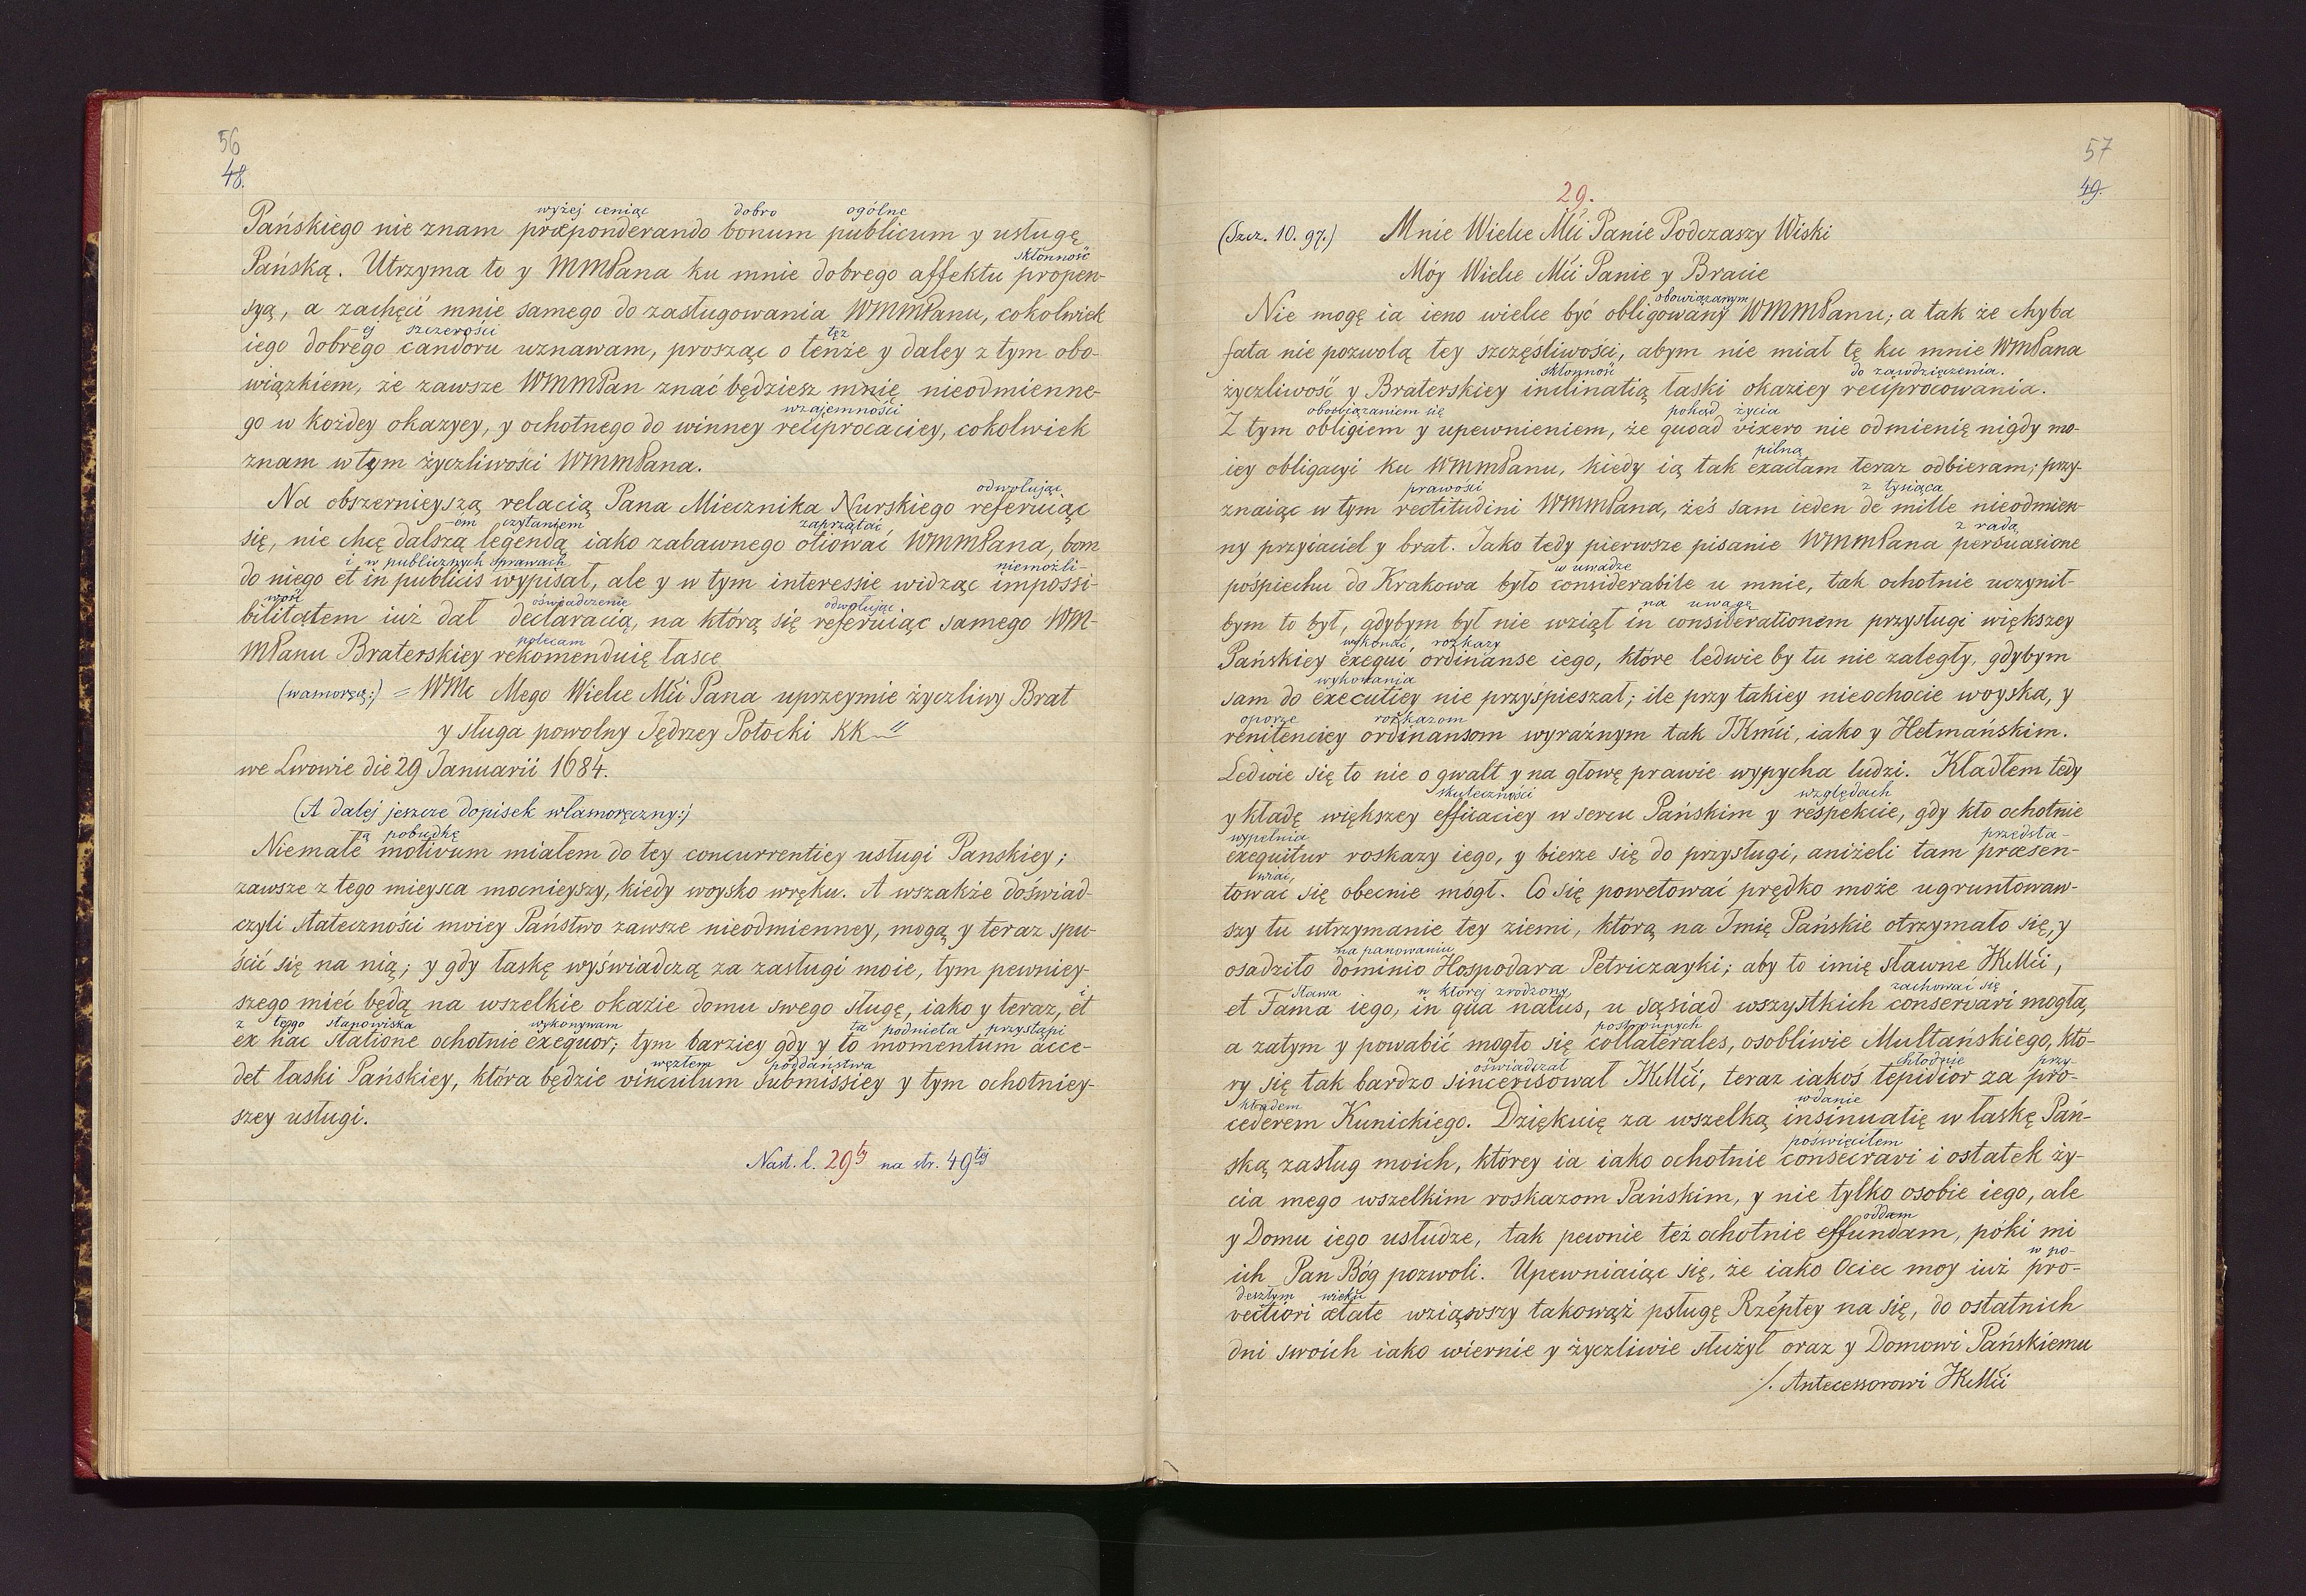 56
48.
wyżej ceniąc dobro ogólne
Pańskiego nie znam præponderando bonum publicum y usługę
skłonność
Pańską. Utrzyma to y WMMPana ku mnie dobrego affektu propen-
syą, a zachęci mnie samego do zasługowania WMMMPanu, cokolwiek
ej szczerości też
iego dobrego candoru uznawam, prosząc o tenże y daley z tym obo-
wiązkiem, że zawsze WMMMPan znać będziesz mnię nieodmienne-
wzajemności
go w kożdey okazyey, y ochotnego do winney reciprocaciey, cokolwiek
znam w tym życzliwości WMMMPana.
odwołując
Na obszernieyszą relacią Pana Miecznika Nurskiego referuiąc
-em czytaniem zaprzątać
się, nie chcę dalszą legendą iako zabawnego otiować WMMMPana, bom
i w publicznych sprawach niemożli-
do niego et in publicis wypisał, ale y w tym interessie widząc impossi-
wość oświadczenie odwołując
bilitatem iuż dał declaracią, na którą się referuiąc samego WM-
polecam
MPanu Braterskiey rekomenduię łasce
(własnoręcz:) = WMc Mego Wielce Mći Pana uprzeymie życzliwy Brat
y sługa powolny Jędrzey Potocki KK "
we Lwowie die 29 Januarii 1684.
(A dalej jeszcze dopisek własnoręczny:)
ą pobudkę
Niemałe motivum miałem do tey concurrentiey usługi Panskiey;
zawsze z tego mieysca mocnieyszy, kiedy woysko wręku. A wszakże doświad-
czyli stateczności moiey Państwo zawsze nieodmienney, mogą y teraz spu-
ścić się na nią; y gdy łaskę wyświadczą za zasługi moie, tym pewniey-
szego mieć będą na wszelkie okazie domu swego sługę, iako y teraz, et
z tego stanowiska wykonywam ta podnieta przystąpi
ex hac statione ochotnie exequor; tym barziey gdy y to momentum acce-
węzłem poddaństwa
det łaski Pańskiey, która będzie vinculum submissiey y tym ochotniey-
szey usługi.
Nast. l. 29ty na str. 49tej
57
49.
29.
(Szcz. 10. 97.) Mnie Wielce Mći Panie Podczaszy Wiski
Móy Wielce Mći Panie y Bracie
obowiązanym
Nie mogę ia ieno wielce być obligowany WMMMPanu; a tak że chyba
fata nie pozwolą tey szczęsliwości, abym nie miał tę ku mnie WMPana
skłonność do zawdzięczenia.
życzliwość y Braterskiey inclinatią łaski okaziey reciprocowania.
obowiązaniem się pokąd życia
Z tym obligiem y upewnieniem, że quoad vixero nie odmienię nigdy mo-
pilną
iey obligacyi ku WMMMPanu, kiedy ią tak exactam teraz odbieram; przy-
prawości z tysiąca
znaiąc w tym rectitudini WMMMPana, żeś sam ieden de mille nieodmien-
z radą
ny przyiaciel y brat. Jako tedy pierwsze pisanie WMMMPana persuasione
w uwadze
pośpiechu do Krakowa było considerabile u mnie, tak ochotnie uczynił-
na uwagę
bym to był, gdybym był nie wziął in considerationem przysługi większey
wykonać, rozkazy
Pańskiey exequi ordinanse iego, które ledwie by tu nie zaległy, gdybym
wykonania
sam do executiey nie przyśpieszał; ile przy takiey nieochocie woyska, y
oporze rozkazom
renitenciey ordinansom wyraźnym tak JKmći, iako y Hetmańskim.
Ledwie się to nie o gwałt y na głowę prawie wypycha ludzi. Kładłem tedy
skuteczności względach
y kładę większey efficaciey w sercu Pańskim y respekcie, gdy kto ochotnie
wypełnia przedsta-
exequitur roskazy iego, y bierze się do przysługi, aniżeli tam præsen-
wiać,
tować się obecnie mógł. Co się powetować prędko może ugruntowaw-
szy tu utrzymanie tey ziemi, którą na Imię Pańskie otrzymało się, y
na panowaniu
osadziło dominio Hospodara Petriczayki; aby to imię sławne JKMći,
sława w której zrodzony zachować się
et Fama iego, in qua natus, u sąsiad wszystkich conservari mogła,
postronnych
a zatym y powabić mogło się collaterales, osobliwie Multańskiego, któ-
oświadczał chłodnie przy-
ry się tak bardzo sincerisował JKMći, teraz iakoś tepidior za pro-
kładem wdanie
cederem Kunickiego. Dziękuię za wszelką insinuatię w łaskę Pań-
poświęciłem
ską zasług moich, którey ia iako ochotnie consecravi i ostatek ży-
cia mego wszelkim roskazom Pańskim, y nie tylko osobie iego, ale
oddam
y Domu iego usłudze, tak pewnie też ochotnie effundam, póki mi
w po-
ich Pan Bóg pozwoli. Upewniaiąc się, że iako Ociec moy iuż pro-
deszłym wieku
vectiori ætate wziąwszy takowąż psługę Rzéptey na się, do ostatnich
dni swoich iako wiernie y życzliwie służył oraz y Domowi Pańskiemu
/. Antecessorowi JKMći